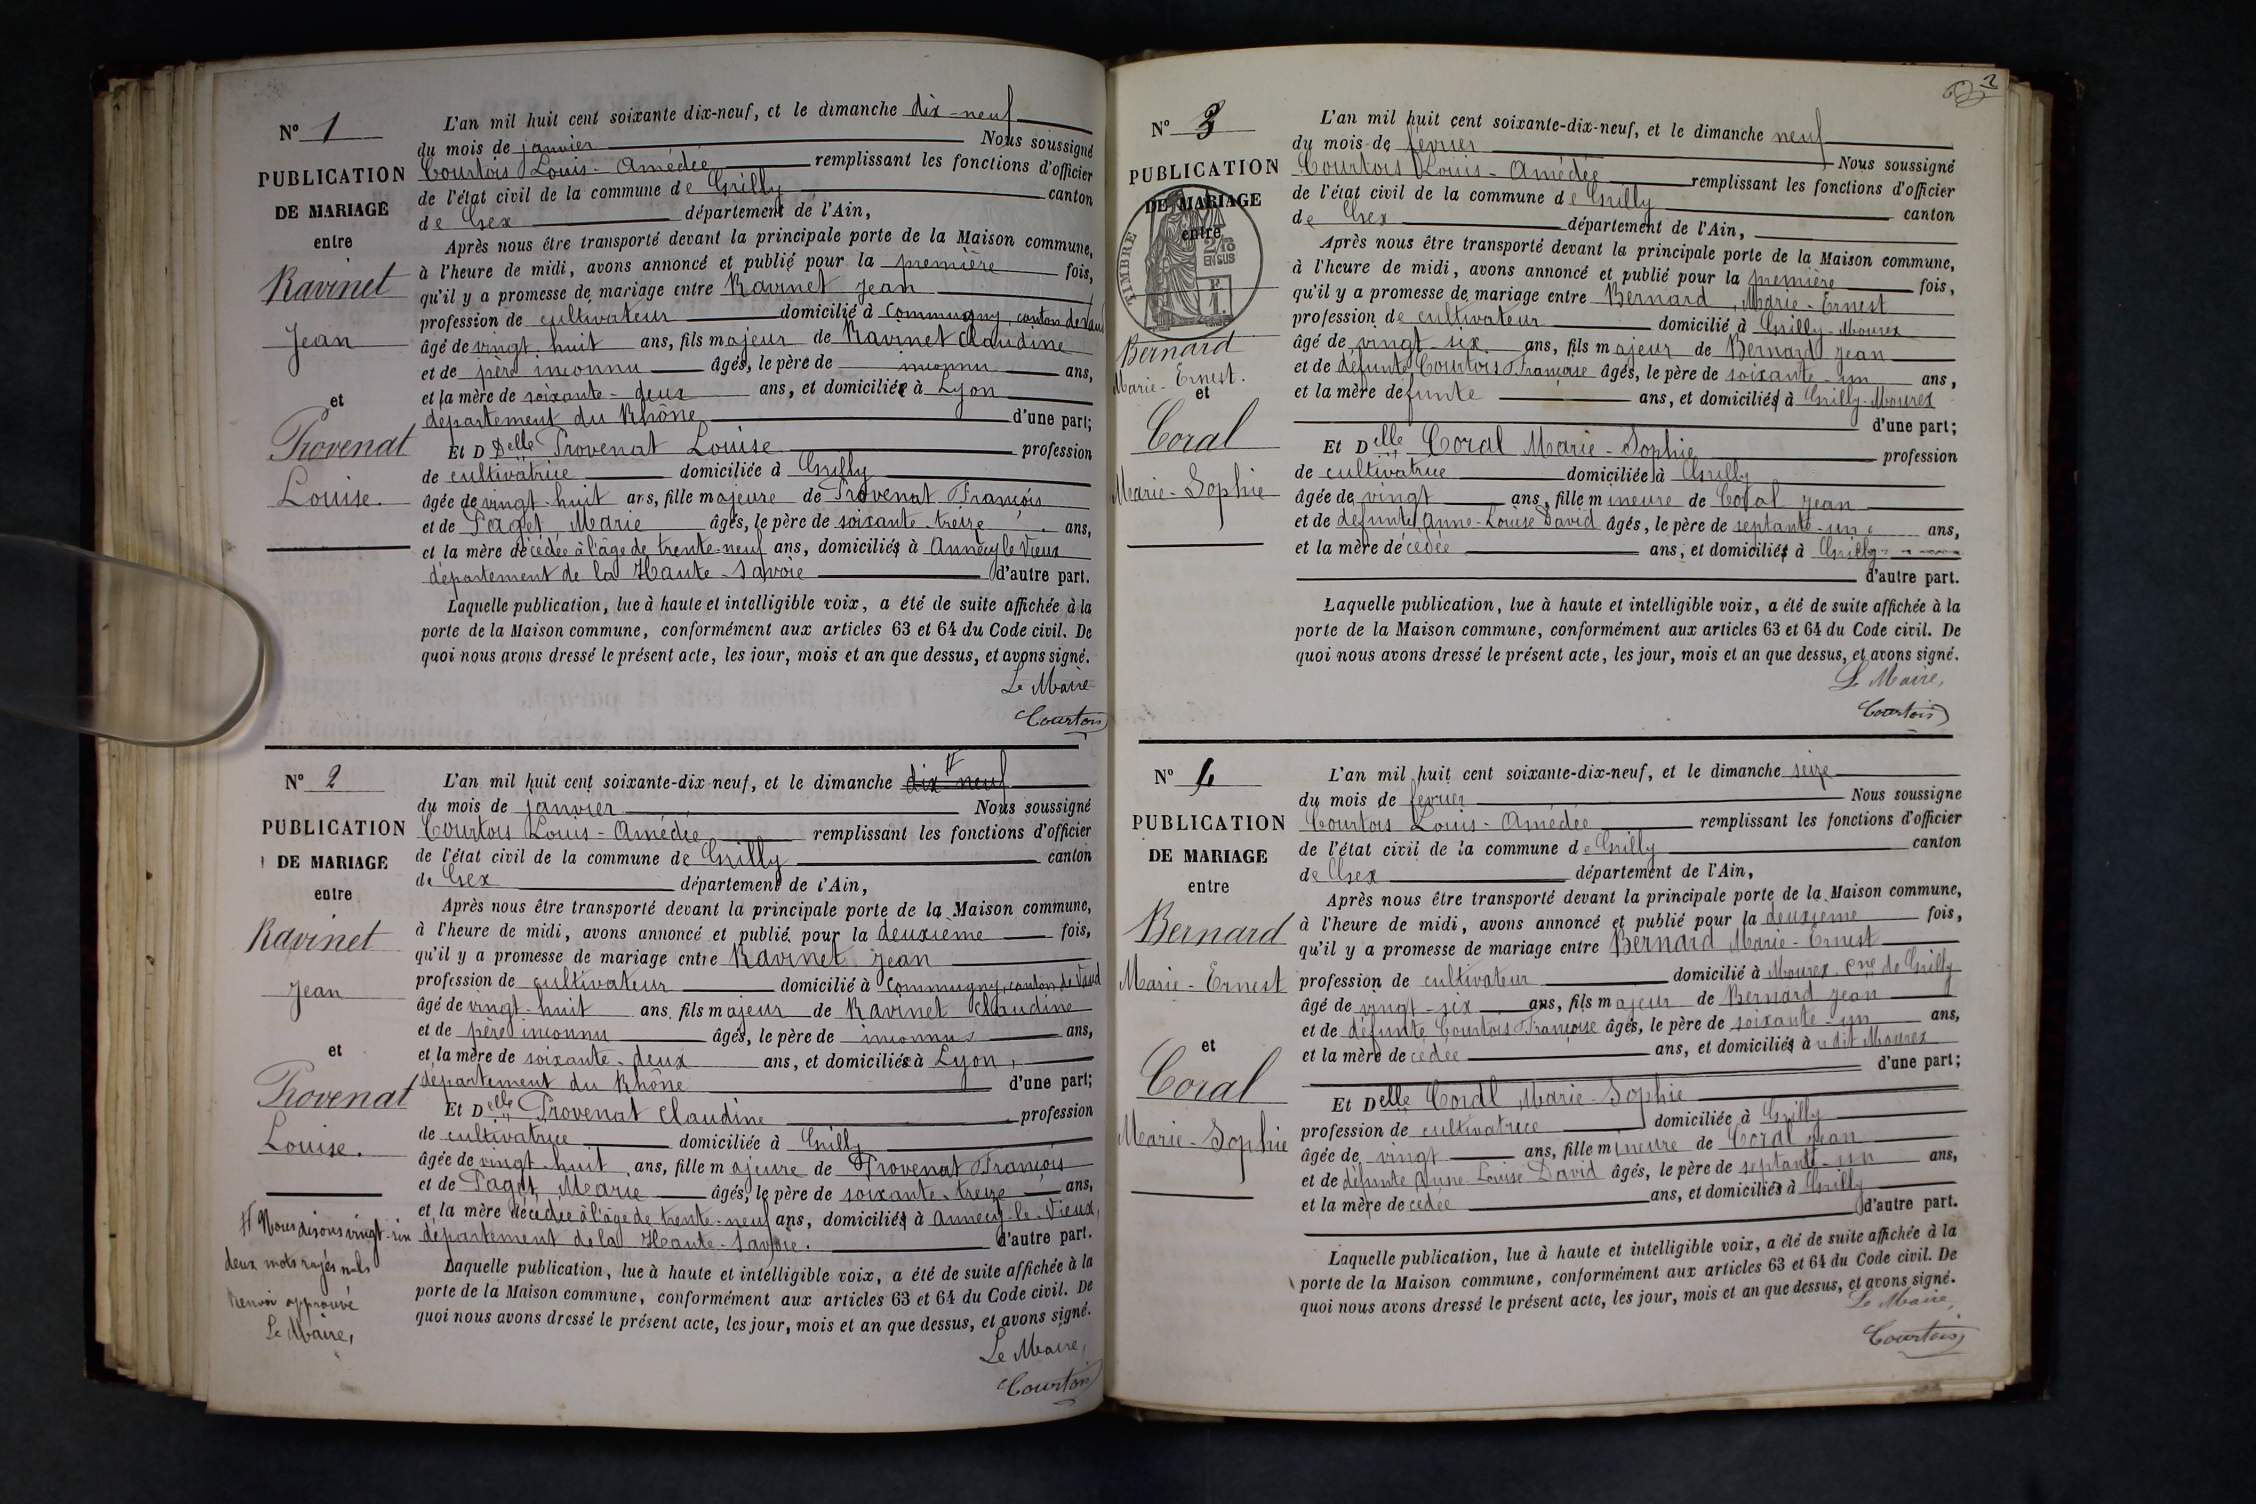 N° 1
PUBLICATION
DE MARIAGE
entre
Ravinet
Jean
et
Provenat
Louise.
L'an mil huit cent soixante dix-neuf, et le dimanche dix-neuf
du mois de janvier Nous soussigné
Courtois Louis-Amédée remplissant les fonctions d'officier
de l'état civil de la commune de Grilly canton
de Gex département de l'Ain,
Après nous être transporté devant la principale porte de la Maison commune,
à l'heure de midi, avons annoncé et publié pour la première fois,
qu'il y a promesse de mariage entre Ravinet Jean
profession de cultivateur domicilié à Commugny, canton de Vaud
âgé de vingt-huit ans, fils majeur de Ravinet Claudine
et de père inconnu âgés, le père de inconnu ans,
et la mère de soixante-deux ans, et domiciliée à Lyon
département du Rhône d'une part;
Et D Delle Provenat Louise profession
de cultivatrice domiciliée à Grilly
âgée de vingt-huit ans, fille majeure de Provenat François
et de Paget Marie âgés, le père de soixante-treize ans,
et la mère décédée à l'âge de trente-neuf ans, domiciliés à Annecy le Vieux
département de la Haute-Savoie d'autre part.
Laquelle publication, lue à haute et intelligible voix, a été de suite affichée à la
porte de la Maison commune, conformément aux articles 63 et 64 du Code civil. De
quoi nous avons dressé le présent acte, les jour, mois et an que dessus, et avons signé.
Le Maire
Courtois
N° 2
PUBLICATION
DE MARIAGE
entre
Ravinet
Jean
et
Provenat
Louise.
# Nous disons vingt-six
deux mots rayés nuls
Renvoi approuvé
Le Maire,
L'an mil huit cent soixante-dix neuf, et le dimanche dix-neuf #
du mois de janvier Nous soussigné
Courtois Louis-Amédée remplissant les fonctions d'officier
de l'état civil de la commune de Grilly canton
de Gex département de l'Ain,
Après nous être transporté devant la principale porte de la Maison commune,
à l'heure de midi, avons annoncé et publié pour la deuxième fois,
qu'il y a promesse de mariage entre Ravinet Jean
profession de cultivateur domicilié à Commugny, canton de Vaud
âgé de vingt-huit ans, fils majeur de Ravinet Claudine
et de père inconnu âgés, le père de inconnus ans,
et la mère de soixante-deux ans, et domiciliés à Lyon,
département du Rhône d'une part;
Et Delle Provenat Claudine profession
de cultivatrice domiciliée à Grilly
âgée de vingt-huit ans, fille majeure de Provenat François
et de Paget Marie âgés, le père de soixante-treize ans,
et la mère décédée à l'âge de trente-neuf ans, domiciliés à Annecy-le-Vieux,
département de la Haute-Savoie. d'autre part.
Laquelle publication, lue à haute et intelligible voix, a été de suite affichée à la
porte de la Maison commune, conformément aux articles 63 et 64 du Code civil. De
quoi nous avons dressé le présent acte, les jour, mois et an que dessus, et avons signé.
Le Maire,
Courtois
2
N° 3
PUBLICATION
DE MARIAGE
entre
TIMBRE
2/10
EN SUS
Bernard
Marie-Ernest.
et
Coral
Marie-Sophie
L'an mil huit cent soixante-dix-neuf, et le dimanche neuf
du mois de février Nous soussigné
Courtois Louis-Amédée remplissant les fonctions d'officier
de l'état civil de la commune de Grilly canton
de Gex département de l'Ain,
Après nous être transporté devant la principale porte de la Maison commune,
à l'heure de midi, avons annoncé et publié pour la première fois,
qu'il y a promesse de mariage entre Bernard, Marie-Ernest
profession de cultivateur domicilié à Grilly-Mourex
âgé de vingt-six ans, fils majeur de Bernard Jean
et de défunte Courtois Françoise âgés, le père de soixante-un ans,
et la mère défunte ans, et domiciliés à Grilly-Mourex
d'une part;
Et Delle Coral Marie-Sophie profession
de cultivatrice domiciliée à Grilly
âgée de vingt ans, fille mineure de Coral Jean
et de défunte Anne-Louise David âgés, le père de septante-un ans,
et la mère décédée ans, et domiciliés à Grilly
d'autre part.
Laquelle publication, lue à haute et intelligible voix, a été de suite affichée à la
porte de la Maison commune, conformément aux articles 63 et 64 du Code civil. De
quoi nous avons dressé le présent acte, les jour, mois et an que dessus, et avons signé.
Le Maire,
Courtois
N° 4
PUBLICATION
DE MARIAGE
entre
Bernard
Marie-Ernest
et
Coral
Marie-Sophie
L'an mil huit cent soixante-dix-neuf, et le dimanche seize
du mois de février Nous soussigné
Courtois Louis-Amédée remplissant les fonctions d'officier
de l'état civil de la commune de Grilly canton
de Gex département de l'Ain,
Après nous être transporté devant la principale porte de la Maison commune,
à l'heure de midi, avons annoncé et publié pour la deuxième fois,
qu'il y a promesse de mariage entre Bernard Marie-Ernest
profession de cultivateur domicilié à Mourex cne de Grilly
âgé de vingt-six ans, fils majeur de Bernard Jean
et de défunte Courtois Françoise âgés, le père de soixante-un ans,
et la mère décédée ans, et domiciliés à u dit Mourex
d'une part;
Et Delle Coral Marie-Sophie
profession de cultivatrice domiciliée à Grilly
âgée de vingt ans, fille mineure de Coral Jean
et de défunte Anne Louise David âgés, le père de septante-un ans,
et la mère décédée ans, et domiciliés à Grilly
d'autre part.
Laquelle publication, lue à haute et intelligible voix, a été de suite affichée à la
porte de la Maison commune, conformément aux articles 63 et 64 du Code civil. De
quoi nous avons dressé le présent acte, les jour, mois et an que dessus, et avons signé.
Le Maire,
Courtois